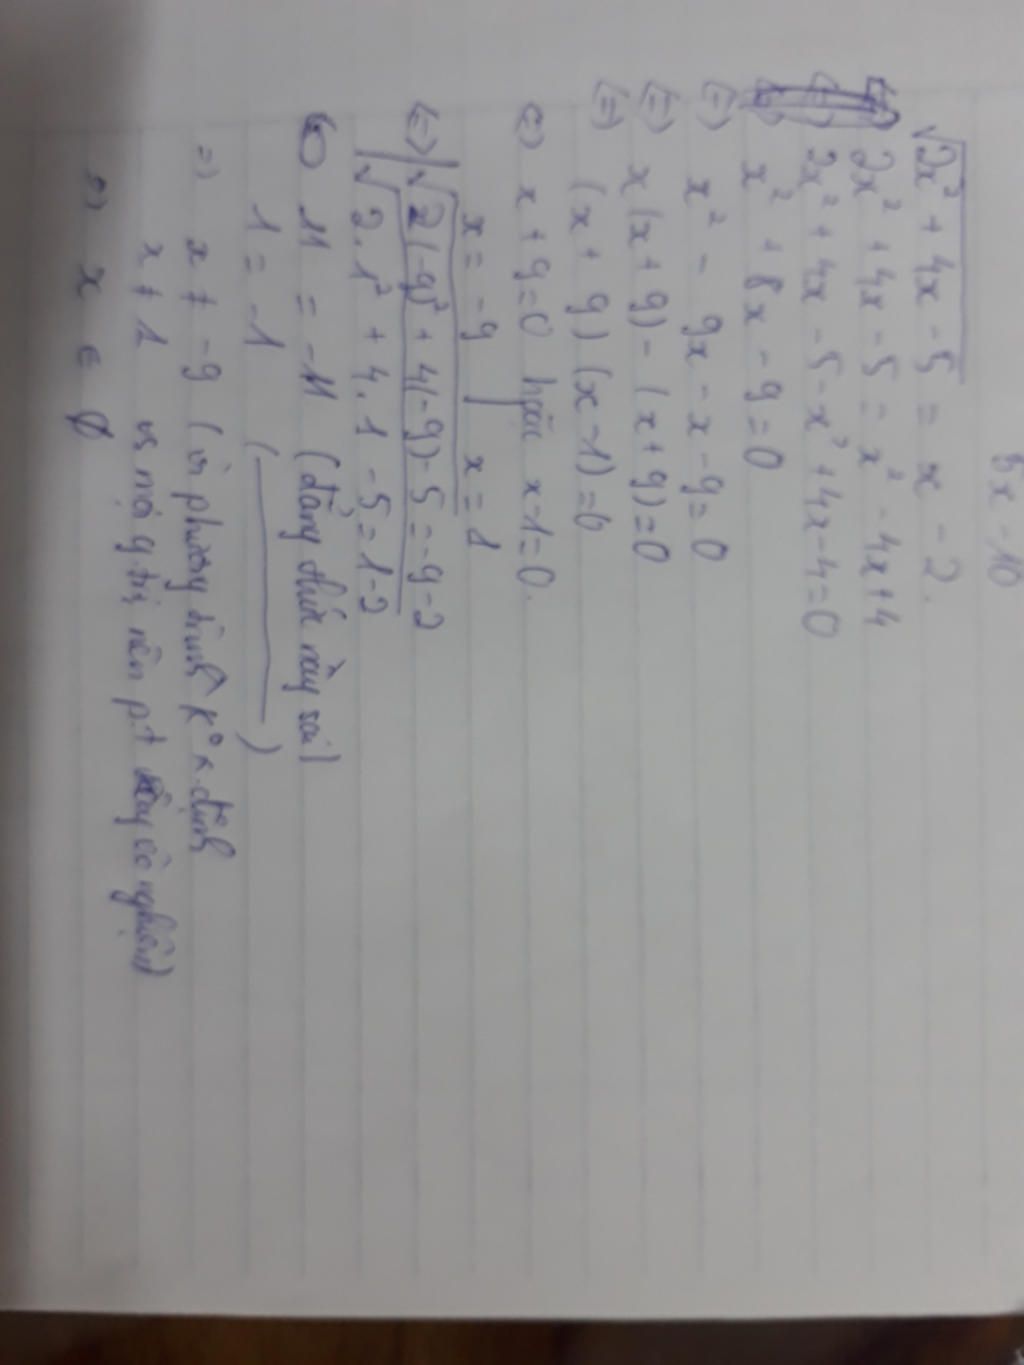 5x - 10
√2x² + 4x - 5 = x - 2.
2x² + 4x - 5 = x² - 4x + 4
2x² + 4x - 5 - x² + 4x - 4 = 0
x² + 8x - 9 = 0
(=) x² - 9x - x - 9 = 0
(=) x(x + 9) - (x + 9) = 0
(=) (x + 9)(x - 1) = 0
(=) x + 9 = 0 hoặc x - 1 = 0.
x = -9 | x = 1
(=) √2(-9)² + 4(-9) - 5 = -9 - 2
√2.1² + 4.1 - 5 = 1 - 2
(=) 11 = -11 (đẳng thức này sai)
1 = -1 ( )
=) x ≠ -9 (vì phương trình k° x.định
x ≠ 1 vs mọi g.trị nên p.t nghiệm)
=) x ∈ ∅